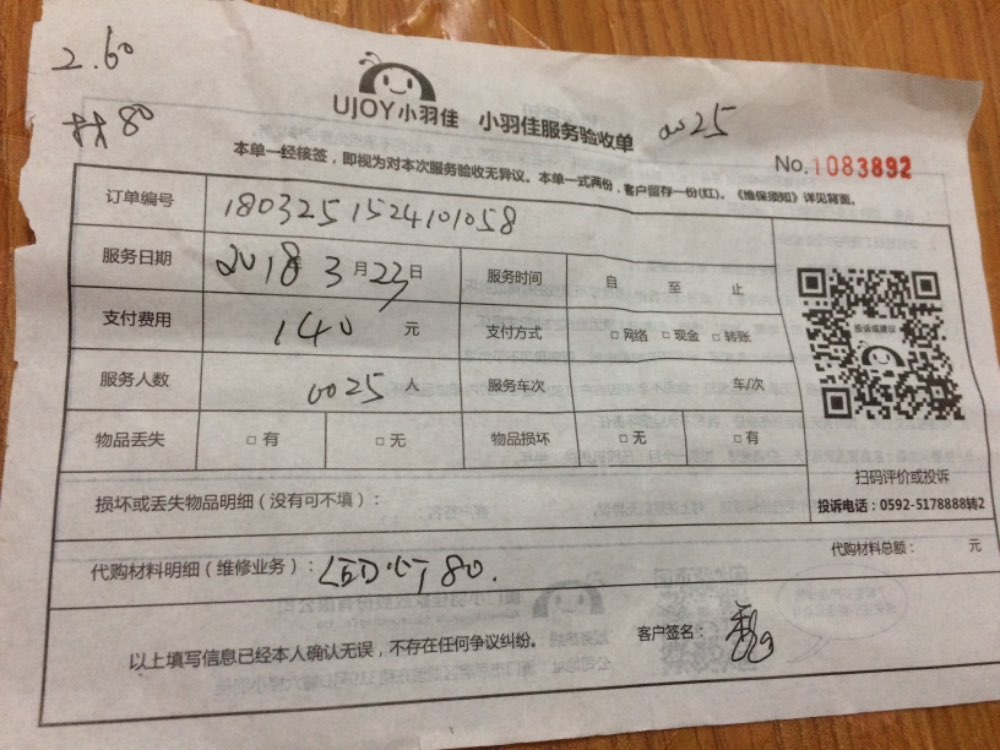 2.60
80
UJOY小羽佳 小羽佳服务验收单
0025
No.1083892
本单一经核签，即视为对本次服务验收无异议。本单一式两份，客户留存一份(红)。《维保须知》详见背面。
订单编号 180325152410 1058
服务日期 2018年3月23日 服务时间 自 至 止
支付费用 140 元 支付方式 □网络 □现金 □转账
服务人数 0025 人 服务车次 车/次
物品丢失 □有 □无 物品损坏 □无 □有
投诉或建议
扫码评价或投诉
投诉电话：0592-5178888转2
损坏或丢失物品明细（没有可不填）：
代购材料明细（维修业务）：LED灯80.
代购材料总额： 元
以上填写信息已经本人确认无误，不存在任何争议纠纷。
客户签名：